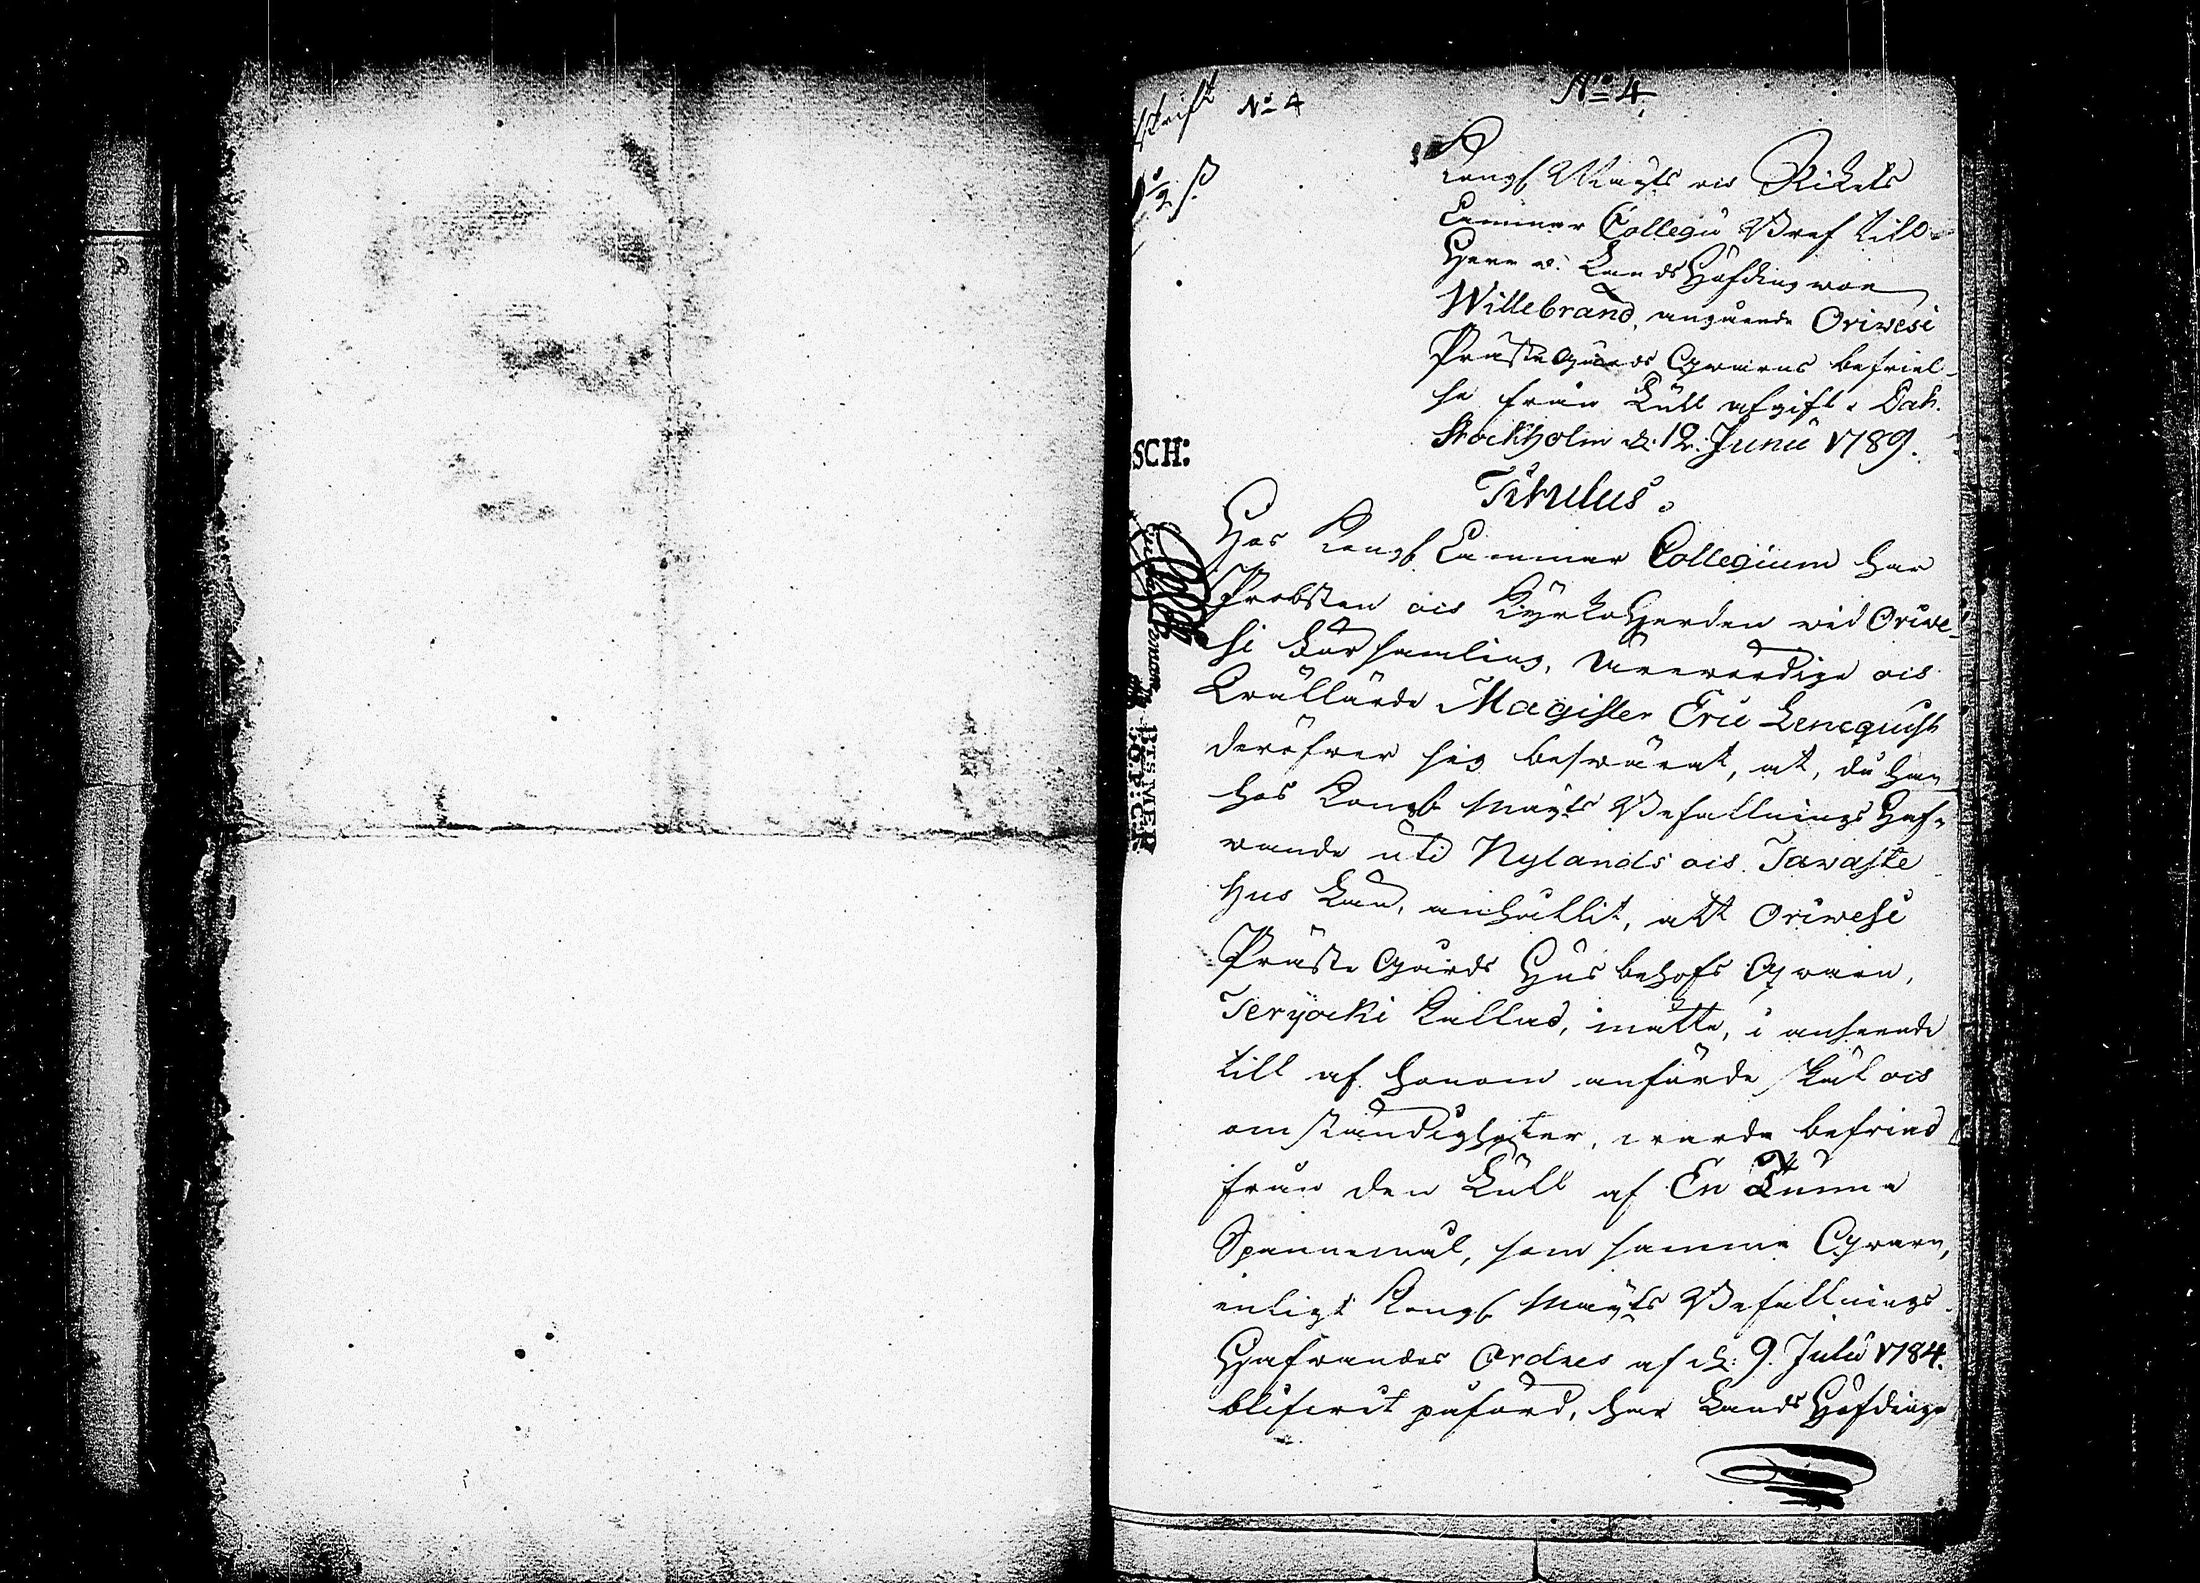 No 4
No 4
Kongl Mayts och Rikets
Cammar Collegii Bref till
Herr v. Lands Höfding von
Willebrand, angående Orivesi
Präste Gårds Qwarns befriel-
se från Tull afgift. Dat.
Stockholm d: 12. Junii 1789.
SCH:
Titulus.
Hos Kongl Cammar Collegium har
Probsten och KyrkoHerden wid Oriwe-
si Församling, Ärewördige och
Wällärde Magister Eric Lencquist
deröfwer sig beswärat, at, då han
hos Kongl Mayts Befallnings Haf-
wande uti Nylands och Tawaste
hus Län, anhållit, att Oriwesi
Präste Gårds Hus behofs Qwarn,
Teryocki kallad, måtte, i anseende
till af honom anförde skäl och
omständigheter, warda befriad
från den Tull af En Tunna
Spannemål, som samma Qwarn,
enligt Kongl Mayts Befallnings
Hafwandes Ordres af d: 9. Julii 1784.
blifwit påförd, har Lands Höfdinge